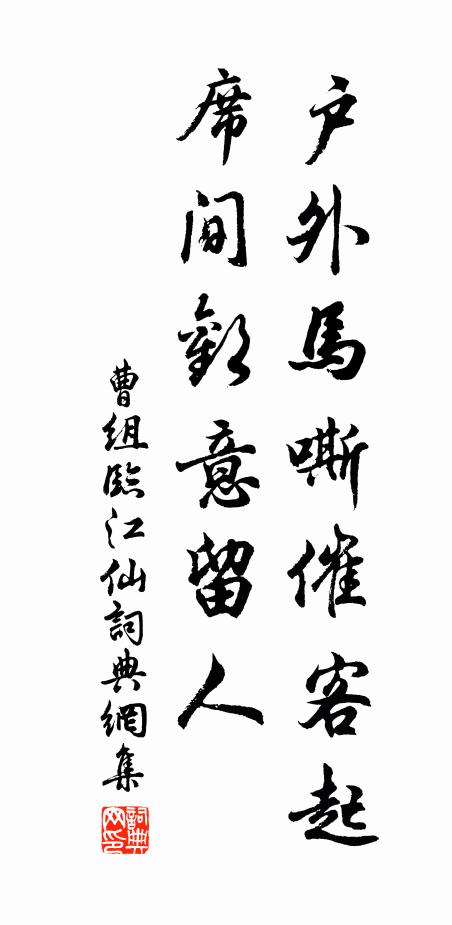 户外馬嘶催客起
席间歡意留人
曹组臨江仙詞典網集
詞典网印